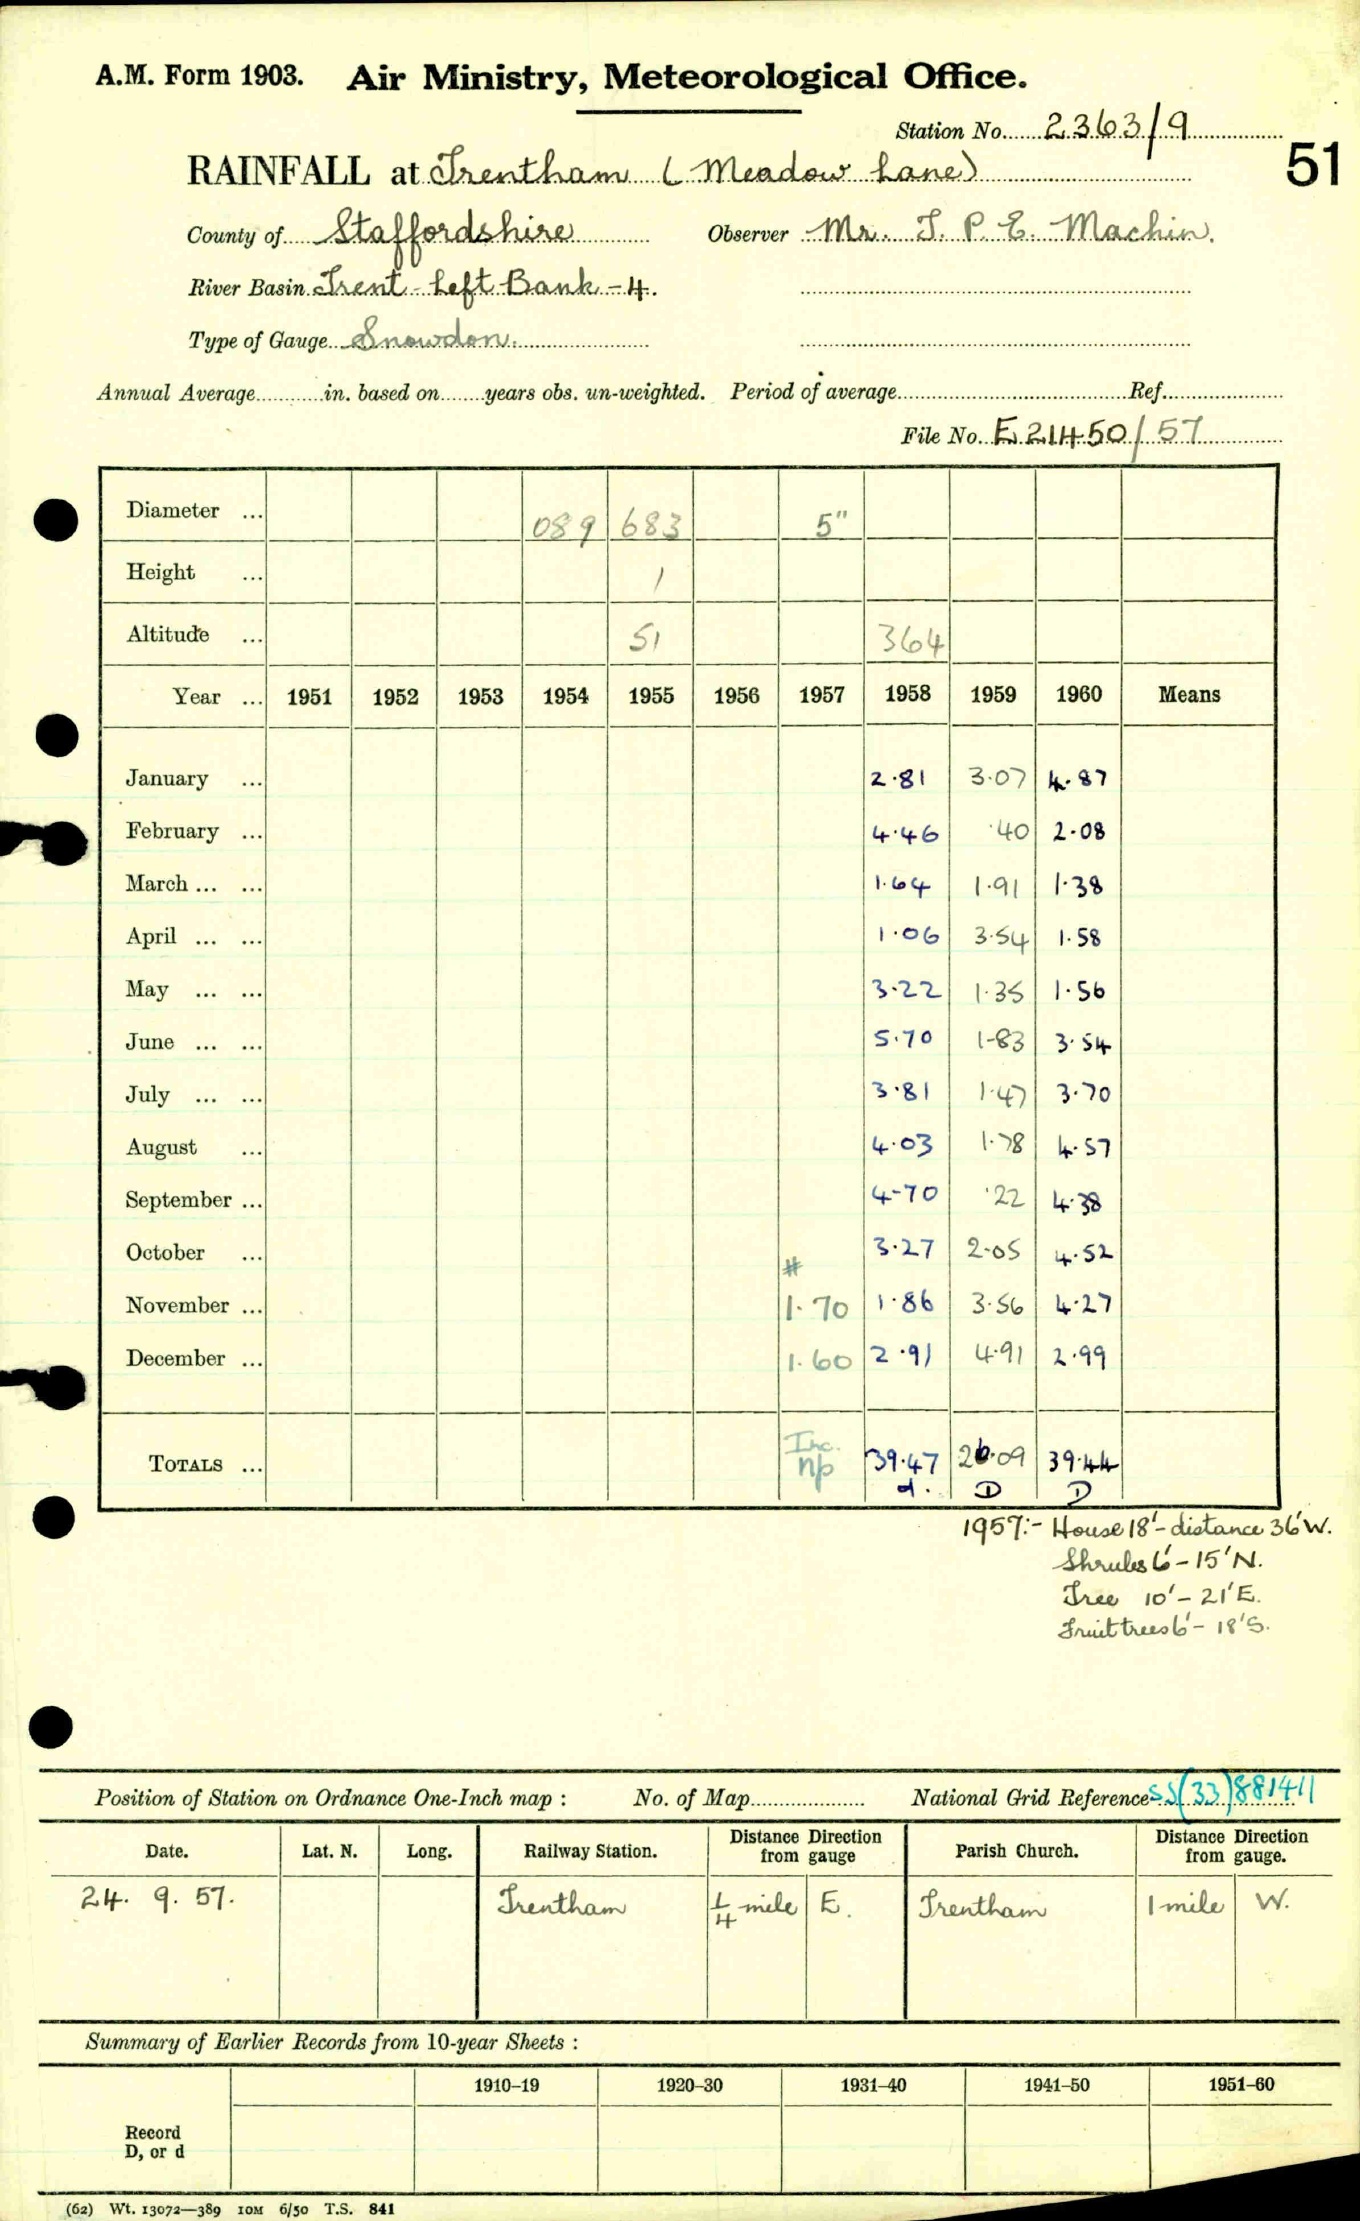 A.M. Form 1903. Air Ministry, Meteorological Office.
Station No. 2363/9
51
RAINFALL at Trentham (Meadow Lane)
County of Staffordshire Observer Mr. T. P. E. Machin.
River Basin Trent - Left Bank - 4.
Type of Gauge Snowdon.
Annual Average............in. based on........years obs. un-weighted. Period of average........................Ref.....................
File No. E 21450/57
Diameter ... 089 683 5"
Height ... 1
Altitude ... 51 364
Year ... 1951 1952 1953 1954 1955 1956 1957 1958 1959 1960 Means
January ... 2.81 3.07 4.87
February ... 4.46 .40 2.08
March ... ... 1.64 1.91 1.38
April ... ... 1.06 3.54 1.58
May ... ... 3.22 1.35 1.56
June ... ... 5.70 1.83 3.54
July ... ... 3.81 1.47 3.70
August ... 4.03 1.78 4.57
September ... 4.70 .22 4.38
October ... 3.27 2.05 4.52
#
November ... 1.70 1.86 3.56 4.27
December ... 1.60 2.91 4.91 2.99
TOTALS ... Inc. np 39.47 26.09 39.44
d. D D
1957:- House 18' - distance 36' W.
Shrubs 6' - 15' N.
Tree 10' - 21' E.
Fruit trees 6' - 18' S.
Position of Station on Ordnance One-Inch map : No. of Map.................... National Grid Reference SJ(33)881411
Date. Lat. N. Long. Railway Station. Distance Direction from gauge Parish Church. Distance Direction from gauge.
24. 9. 57. Trentham 1/4 mile E. Trentham 1 mile W.
Summary of Earlier Records from 10-year Sheets :
1910–19 1920–30 1931–40 1941–50 1951–60
Record
D, or d
(62) Wt. 13072—389 10M 6/50 T.S. 841